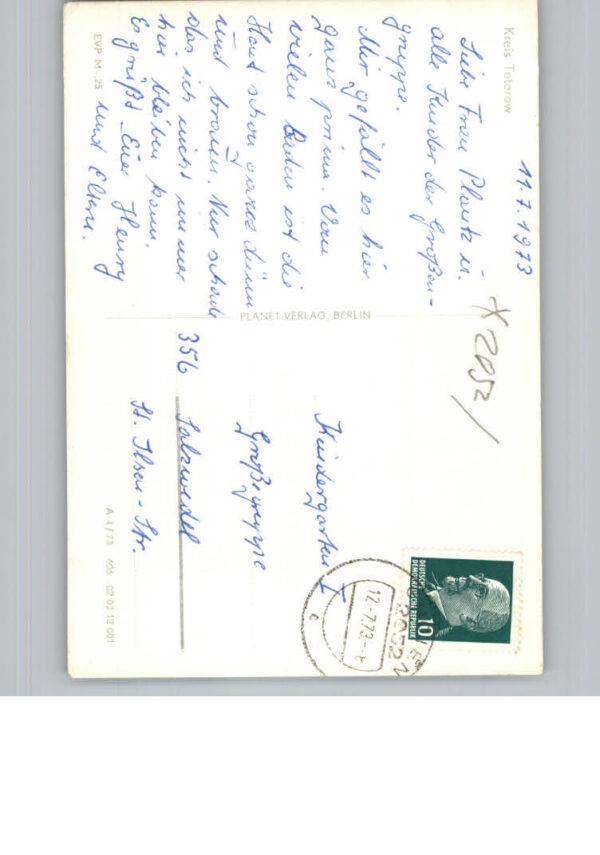 Kreis Teterow
11.7.1973
Liebe Frau Plautz u.
alle Kinder der Großen-
gruppe.
Mir gefällt es hier
ganz prima. Vom
vielen Baden ist die
Haut schon ganz dünn
und braun. Nur schade
das ich nicht immer
hier bleiben kann.
Es grüßt Euer Henry
und Eltern.
EVP M -.25
PLANET-VERLAG, BERLIN
X 2052/
Kindergarten I
Großegruppe
356 Salzwedel
St. Ilsen-Str.
A 4/73 606 02 03 12 001
DEUTSCHE
DEMOKRATISCHE REPUBLIK
10
12.-7.73
c